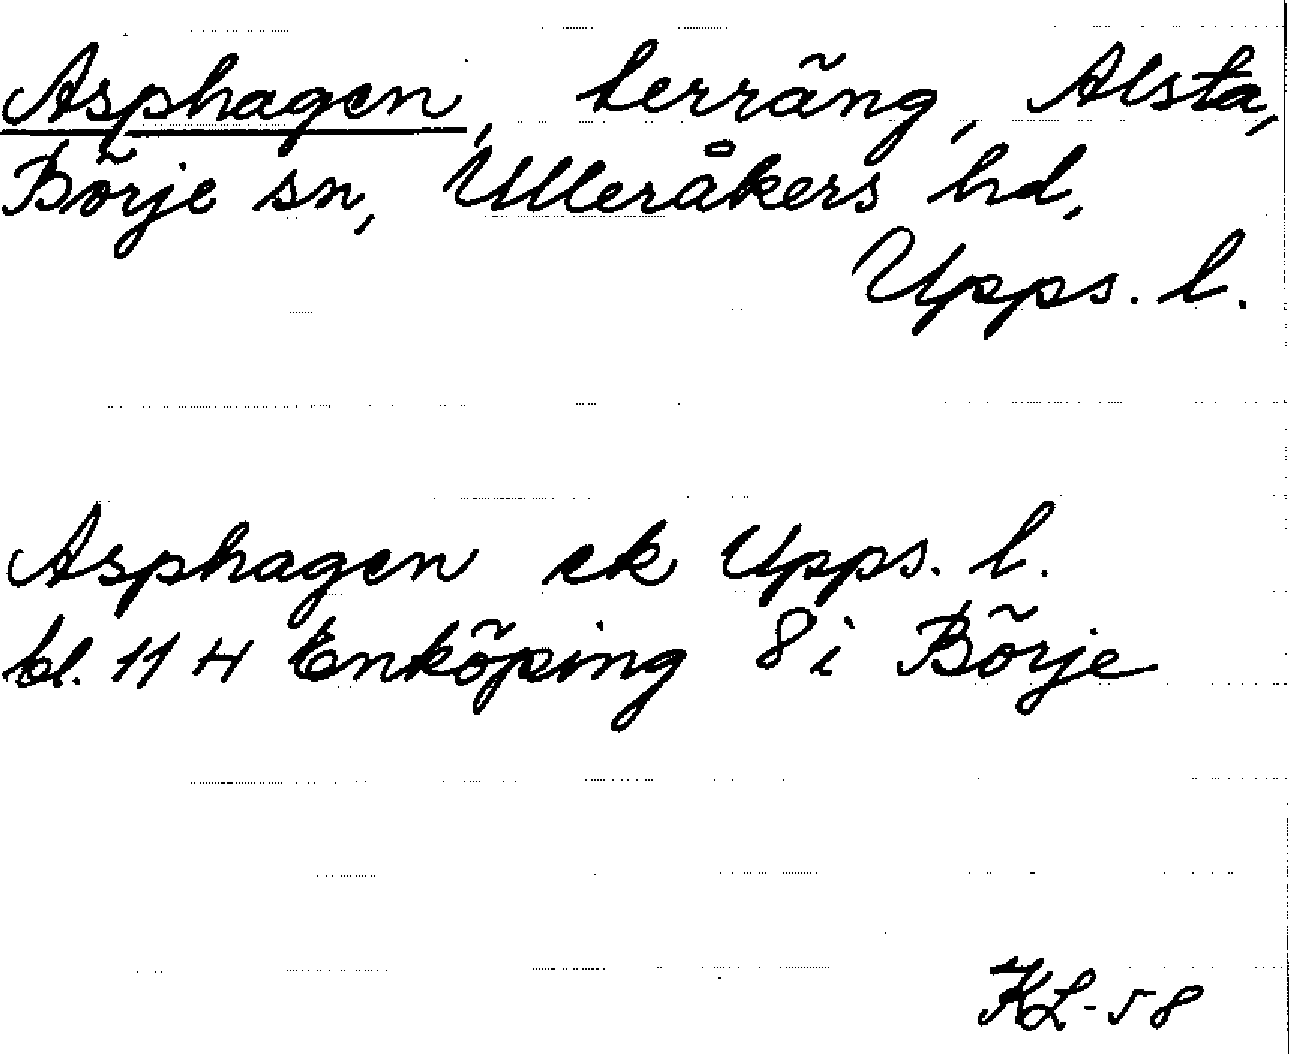 Asphagen, terräng, Alsta,
Börje sn, Ulleråkers hd,
Upps. l.
Asphagen ek Upps. l.
bl. 114 Enköping 8i Börje
KL-58